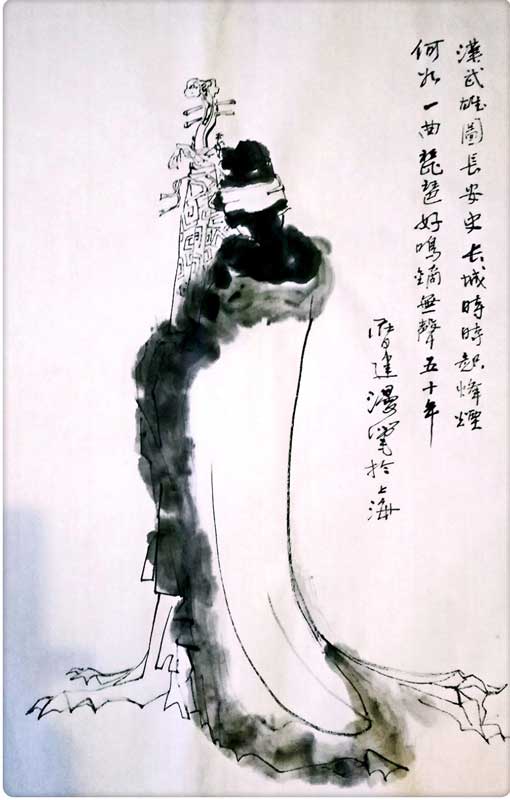 漢武雄圖長安史长城時時起烽煙
何如一曲琵琶好鳴鏑無聲五十年
建漫筆於上海